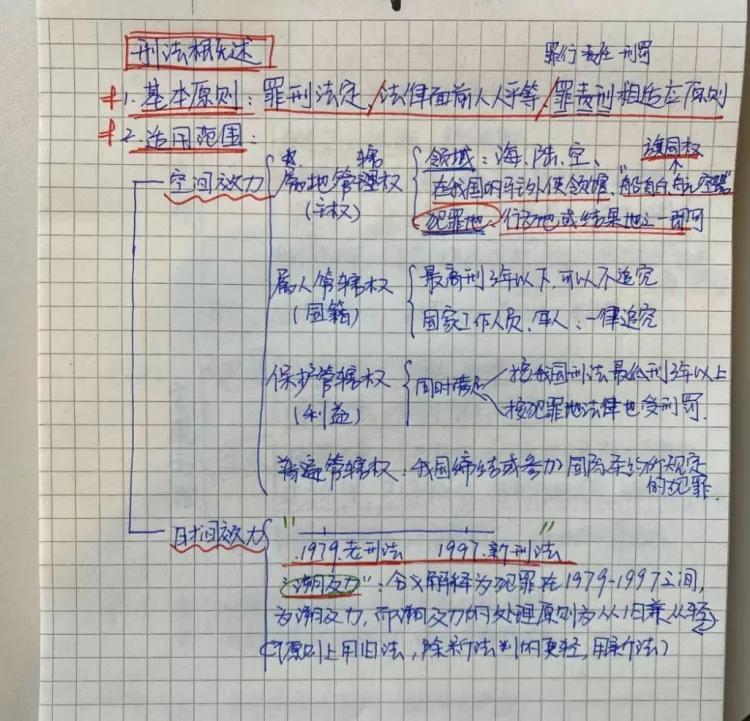 刑法概述
罪行 责任 刑罚
1. 基本原则：罪刑法定，法律面前人人平等，罪责刑相适应原则
2. 适用范围：
空间效力
属地管理权
辖
（主权）
领域：海、陆、空、
旗国权
在我国的驻外使领馆、"船舶、航空器"
犯罪地：行为地或结果地之一即可
属人管辖权
（国籍）
最高刑3年以下，可以不追究
国家工作人员、军人：一律追究
保护管辖权
（利益）
同时满足
按我国刑法最低刑3年以上
按犯罪地法律也受刑罚.
普遍管辖权：我国缔结或参加国际条约所规定
的犯罪.
时间效力
1979.老刑法 1997.新刑法
"溯及力"：含义解释为犯罪在1979-1997之间，
为溯及力，而溯及力的处理原则为从旧兼从轻
（原则上用旧法，除新法判的更轻，用新法）